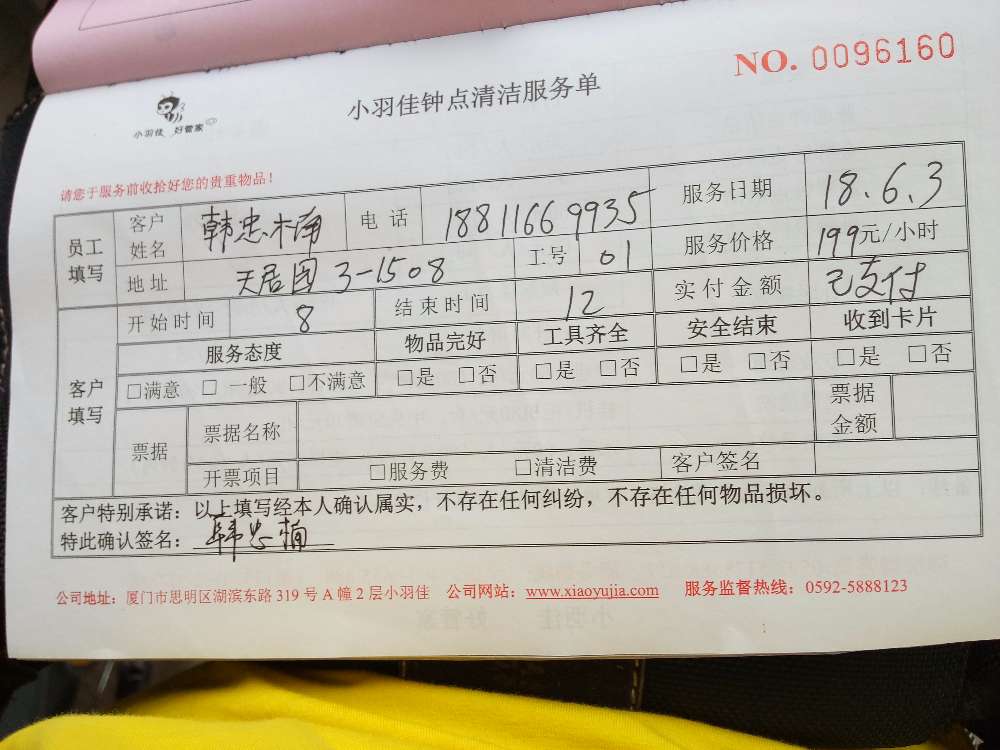 NO. 0096160
小羽佳钟点清洁服务单
小羽佳 好管家
请您于服务前收拾好您的贵重物品！
员工填写 客户姓名 韩忠楠 电话 18811669935 服务日期 18.6.3
地址 天居园 3-1508 工号 01 服务价格 199元/小时
客户填写 开始时间 8 结束时间 12 实付金额 已支付
服务态度 物品完好 工具齐全 安全结束 收到卡片
□满意 □ 一般 □不满意 □是 □否 □是 □否 □是 □否 □是 □否
票据 票据名称 票据金额
开票项目 □服务费 □清洁费 客户签名
客户特别承诺：以上填写经本人确认属实，不存在任何纠纷，不存在任何物品损坏。
特此确认签名：韩忠楠
公司地址：厦门市思明区湖滨东路 319 号 A 幢 2 层小羽佳 公司网站：www.xiaoyujia.com 服务监督热线：0592-5888123